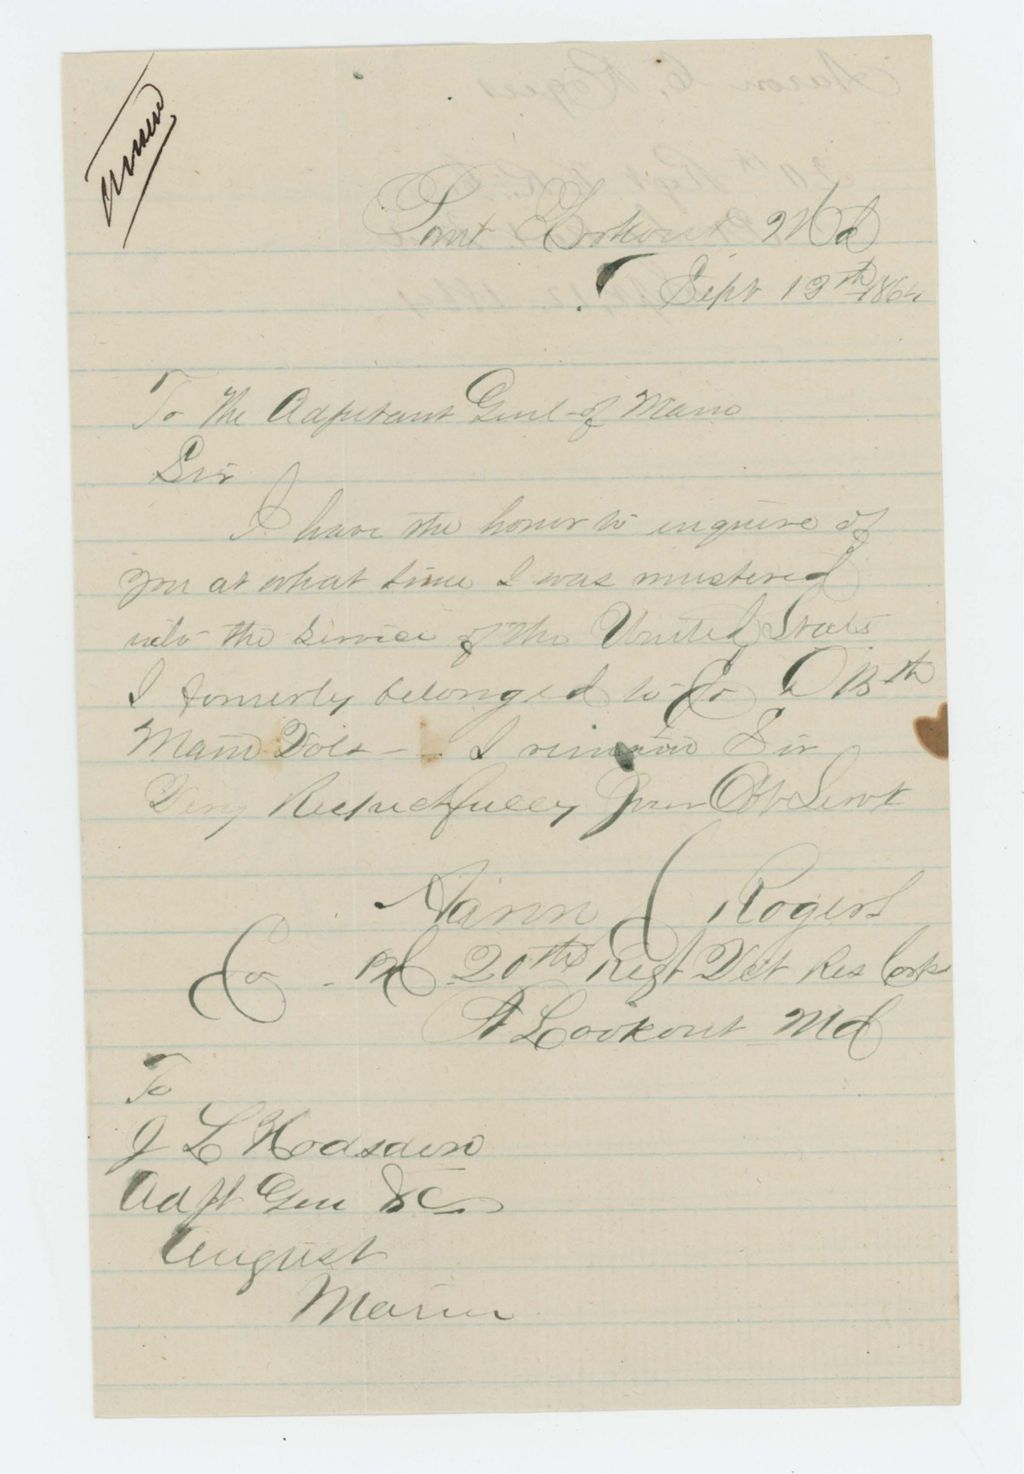 Answd
Point Lookout Md
Sept 12th 1864
To The Adjutant Genl of Maine
Sir
I have the honor to inquire of
you at what time I was mustered
into the service of the United States
I formerly belonged to Co 13th
Maine Vols - - I remain Sir
Very Respectfully Your Obt Servt
Aaron C Rogers
Co. K 20th Regt Vet Res Corps
Pt Lookout Md
To
J L Hodsden
Adjt Gen &c
August
Maine